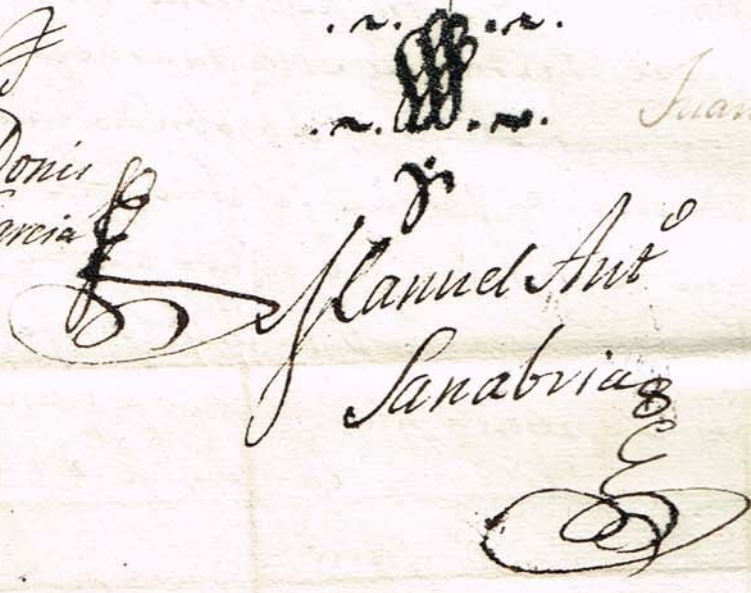 Juan
Donis
Garcia
Manuel Antº
Sanabria